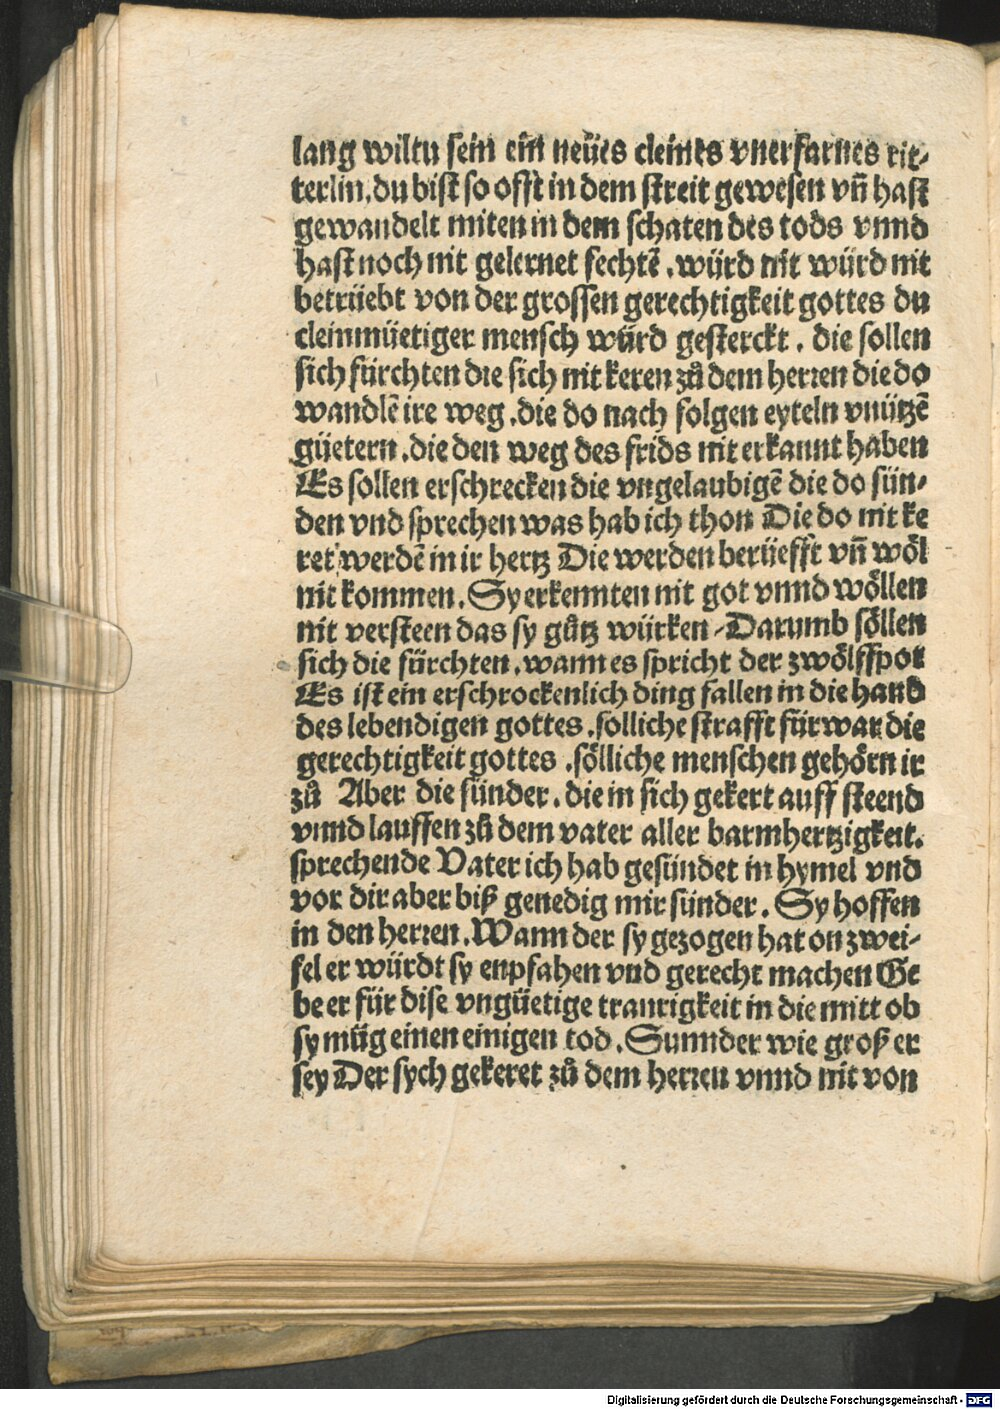 lang wiltu sein ein neües cleines vnerfarnes rit-
terlin. du bist so offt in dem streit gewesen vn̄ hast
gewandelt miten in dem schaten des tods vnnd
hast noch nit gelernet fechtē . würd nit würd nit
betrüebt von der grossen gerechtigkeit gottes du
cleinmüetiger mensch würd gesterckt . die sollen
sich fürchten die sich nit keren zů dem herren die do
wandlē ire weg . die do nach folgen eyteln vnützē
güetern . die den weg des frids nit erkannt haben
Es sollen erschrecken die vngelaubigē die do sün-
den vnd sprechen was hab ich thon Die do nit ke
ret werdē in ir hertz Die werden berüefft vn̄ wöl
nit kommen . Sy erkennten nit got vnnd wöllen
nit versteen das sy gůtz würken - Darumb söllen
sich die fürchten . wann es spricht der zwölffpot
Es ist ein erschrockenlich ding fallen in die hand
des lebendigen gottes . solliche strafft fürwar die
gerechtigkeit gottes . sölliche menschen gehörn ir
zů Aber die sünder . die in sich gekert auff steend
vnnd lauffen zů dem vater aller barmhertzigkeit .
sprechende Vater ich hab gesündet in hymel vnd
vor dir aber biß genedig mir sünder . Sy hoffen
in den herren . Wann der sy gezogen hat on zwei-
fel er würdt sy enpfahen vnd gerecht machen Ge
be er für dise vngüetige traurigkeit in die mitt ob
sy müg einen einigen tod . Sunnder wie groß er
sey Der sych gekeret zů dem herren vnnd nit von
Digitalisierung gefördert durch die Deutsche Forschungsgemeinschaft - DFG